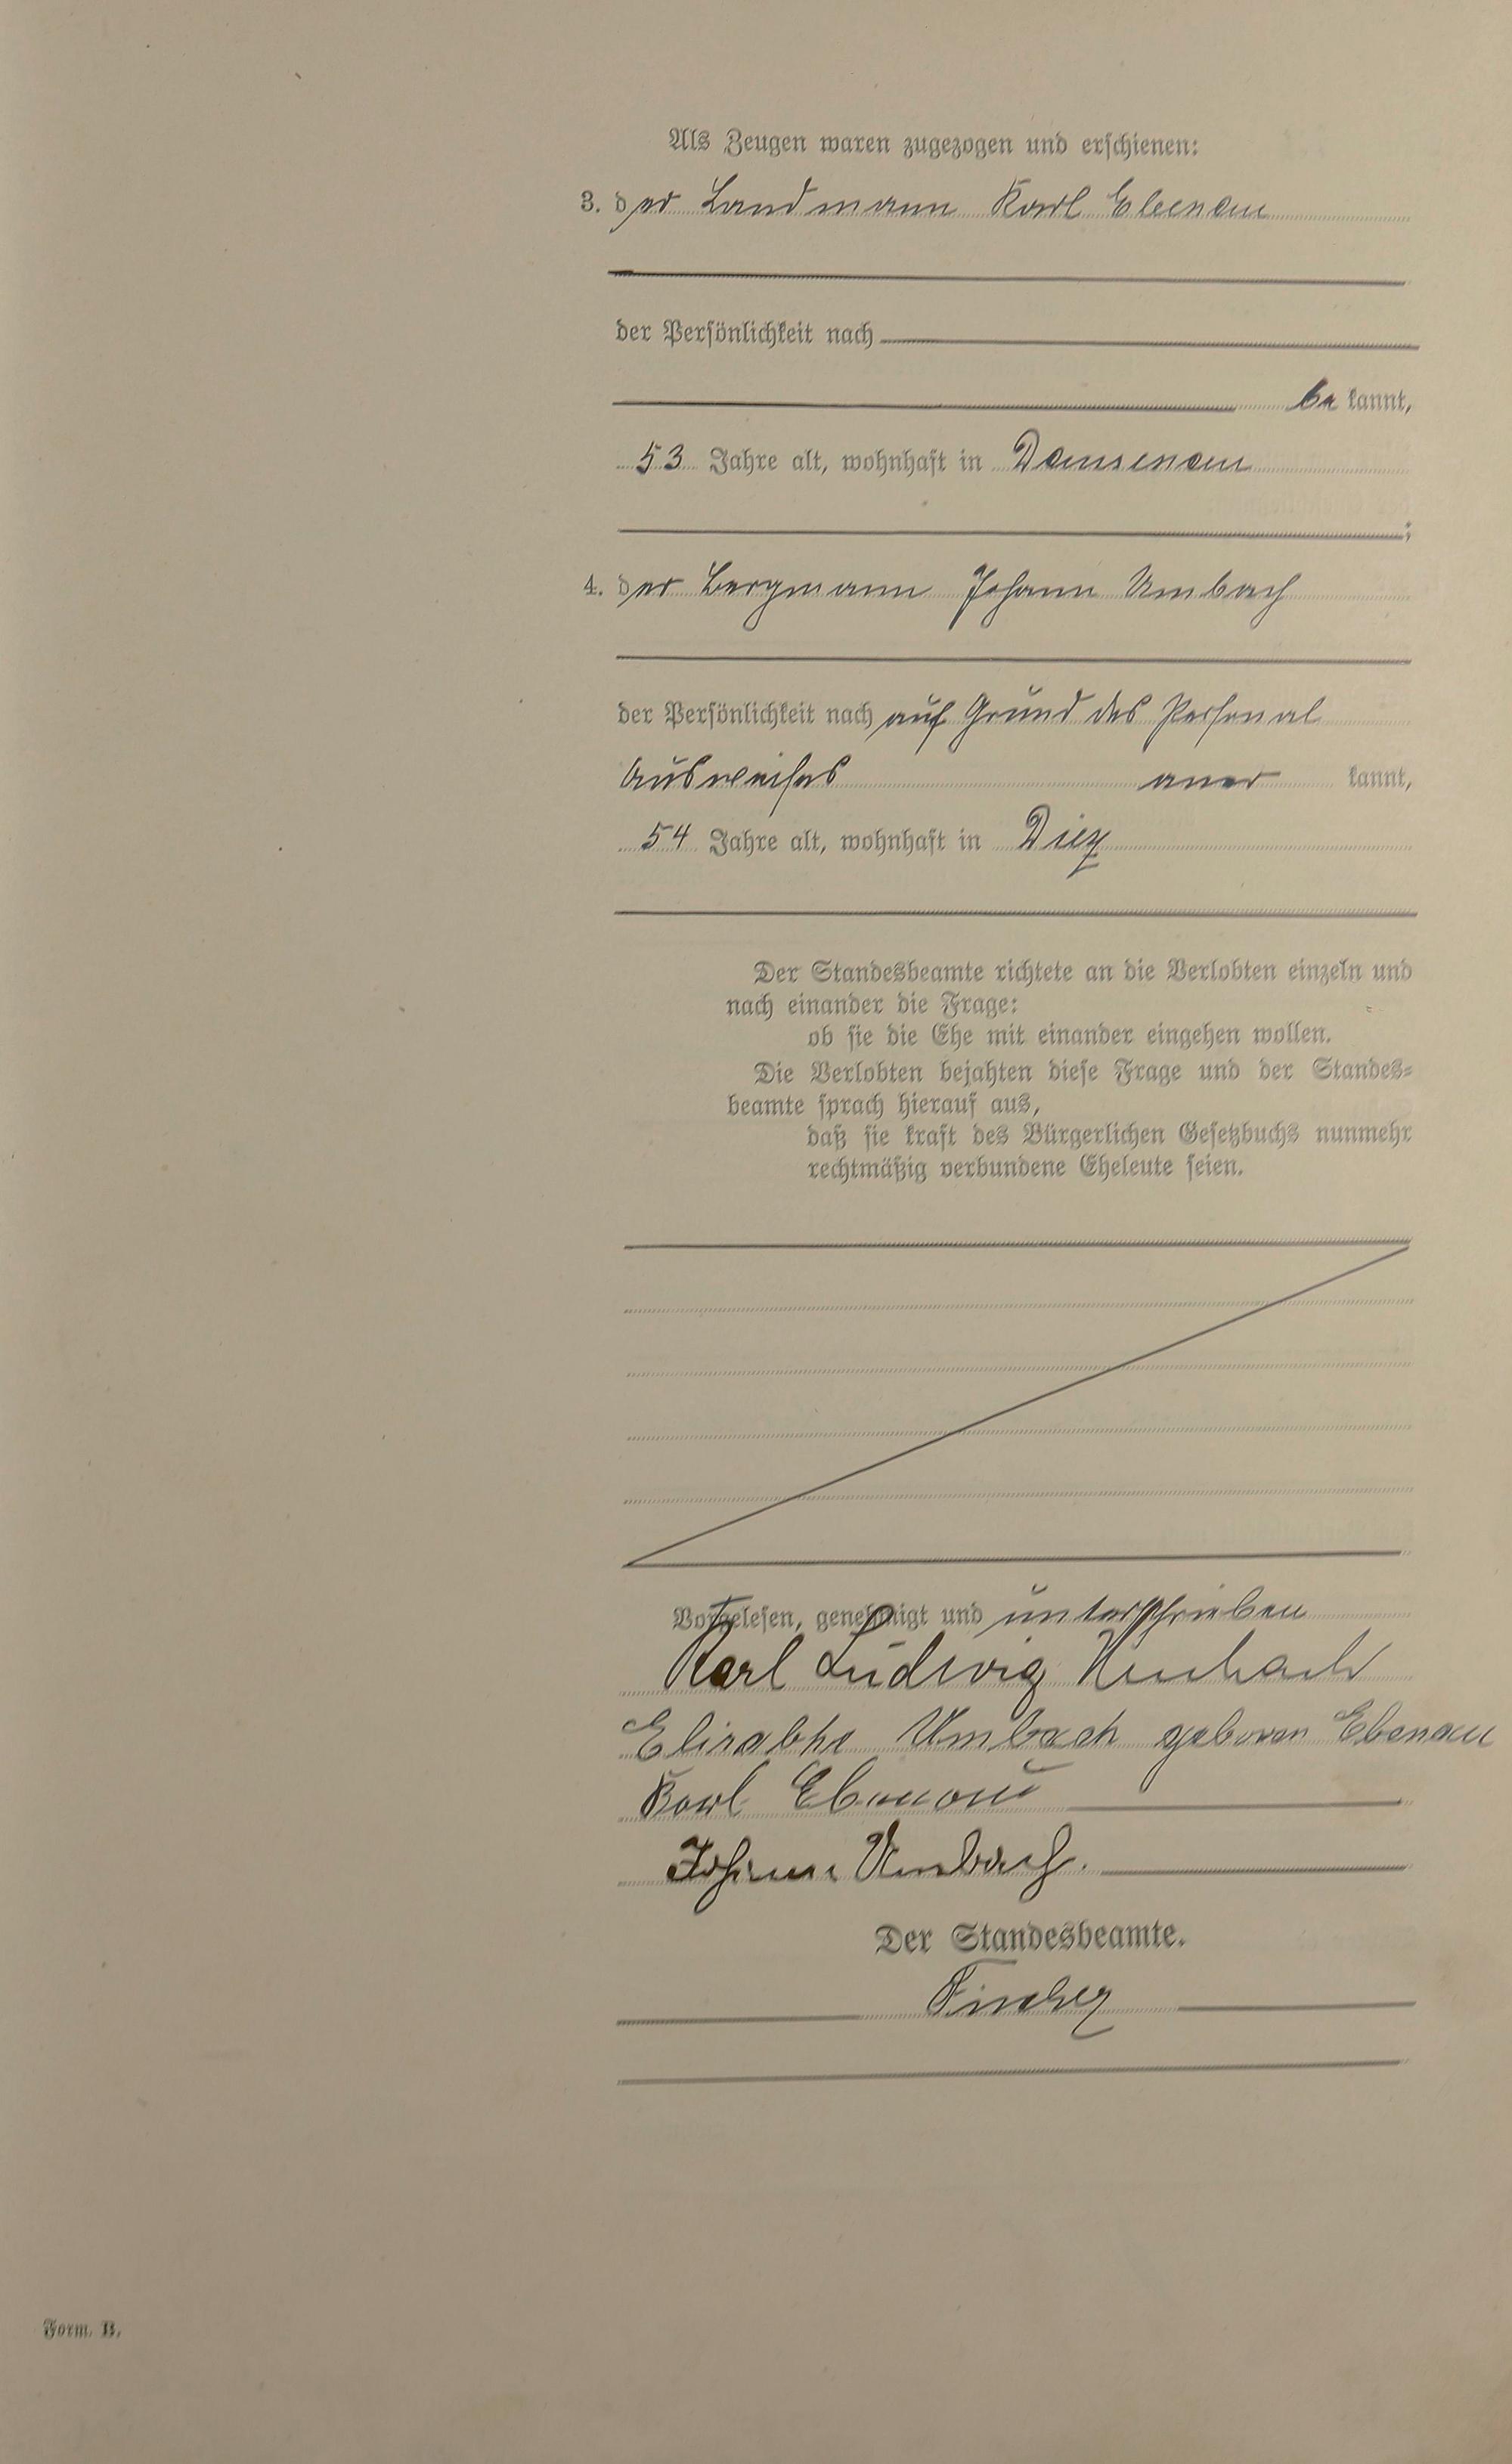 Als Zeugen waren zugezogen und erschienen:
3. der Landmann Karl Ebenau
der Persönlichkeit nach
be kannt,
53 Jahre alt, wohnhaft in Dausenau
;
4. der Bergmann Johann Umbach
der Persönlichkeit nach auf Grund des Personal
Ausweises aner kannt,
54 Jahre alt, wohnhaft in Diez
Der Standesbeamte richtete an die Verlobten einzeln und
nach einander die Frage:
ob sie die Ehe mit einander eingehen wollen.
Die Verlobten bejahten diese Frage und der Standes-
beamte sprach hierauf aus,
daß sie kraft des Bürgerlichen Gesetzbuchs nunmehr
rechtmäßig verbundene Eheleute seien.
Vorgelesen, genehmigt und unterschrieben
Karl Ludwig Umbach
Umbach geboren Ebenau
Karl Ebenau
Johann Umbach.
Der Standesbeamte.
Form. B.